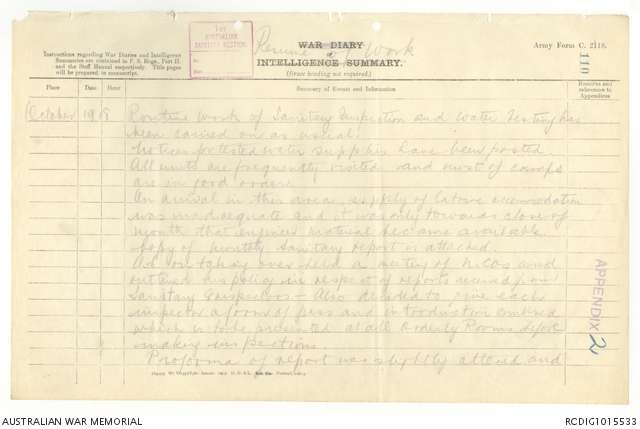 1ST
AUSTRALIAN
SANITARY SECTION
Army Form C. 2118.
110
WAR DIARY
or
Resume of Work
INTELLIGENCE SUMMARY.
(Erase heading not required.)
Instructions regarding War Diaries and Intelligence
Summaries are contained in F. S. Regs., Part II.
and the Staff Manual respectively. Title pages
will be prepared in manuscript.
Place Date Hour Summary of Events and Information Remarks and
references to
Appendices
October 1918 Routine work of Sanitary Inspection and water testing has
been carried on as usual.
Notices protected water supplies have been posted
All units are frequently visited and most of camps
are in good order.
On arrival in this area supply of latrine accommodation
was inadequate and it was only towards close of
month that engineer material became available.
Copy of monthly Sanitary report is attached.
on taking over held a meeting of N.C.Os and
outlined his policy in respect of reports received from
Sanitary Inspectors - Also decided to give each
inspector a form of pass and introduction combined
which is to be presented at all Orderly Rooms before
making inspections
Proforma of report was slightly altered and
APPENDIX 2
AUSTRALIAN WAR MEMORIAL
RCDIG1015533